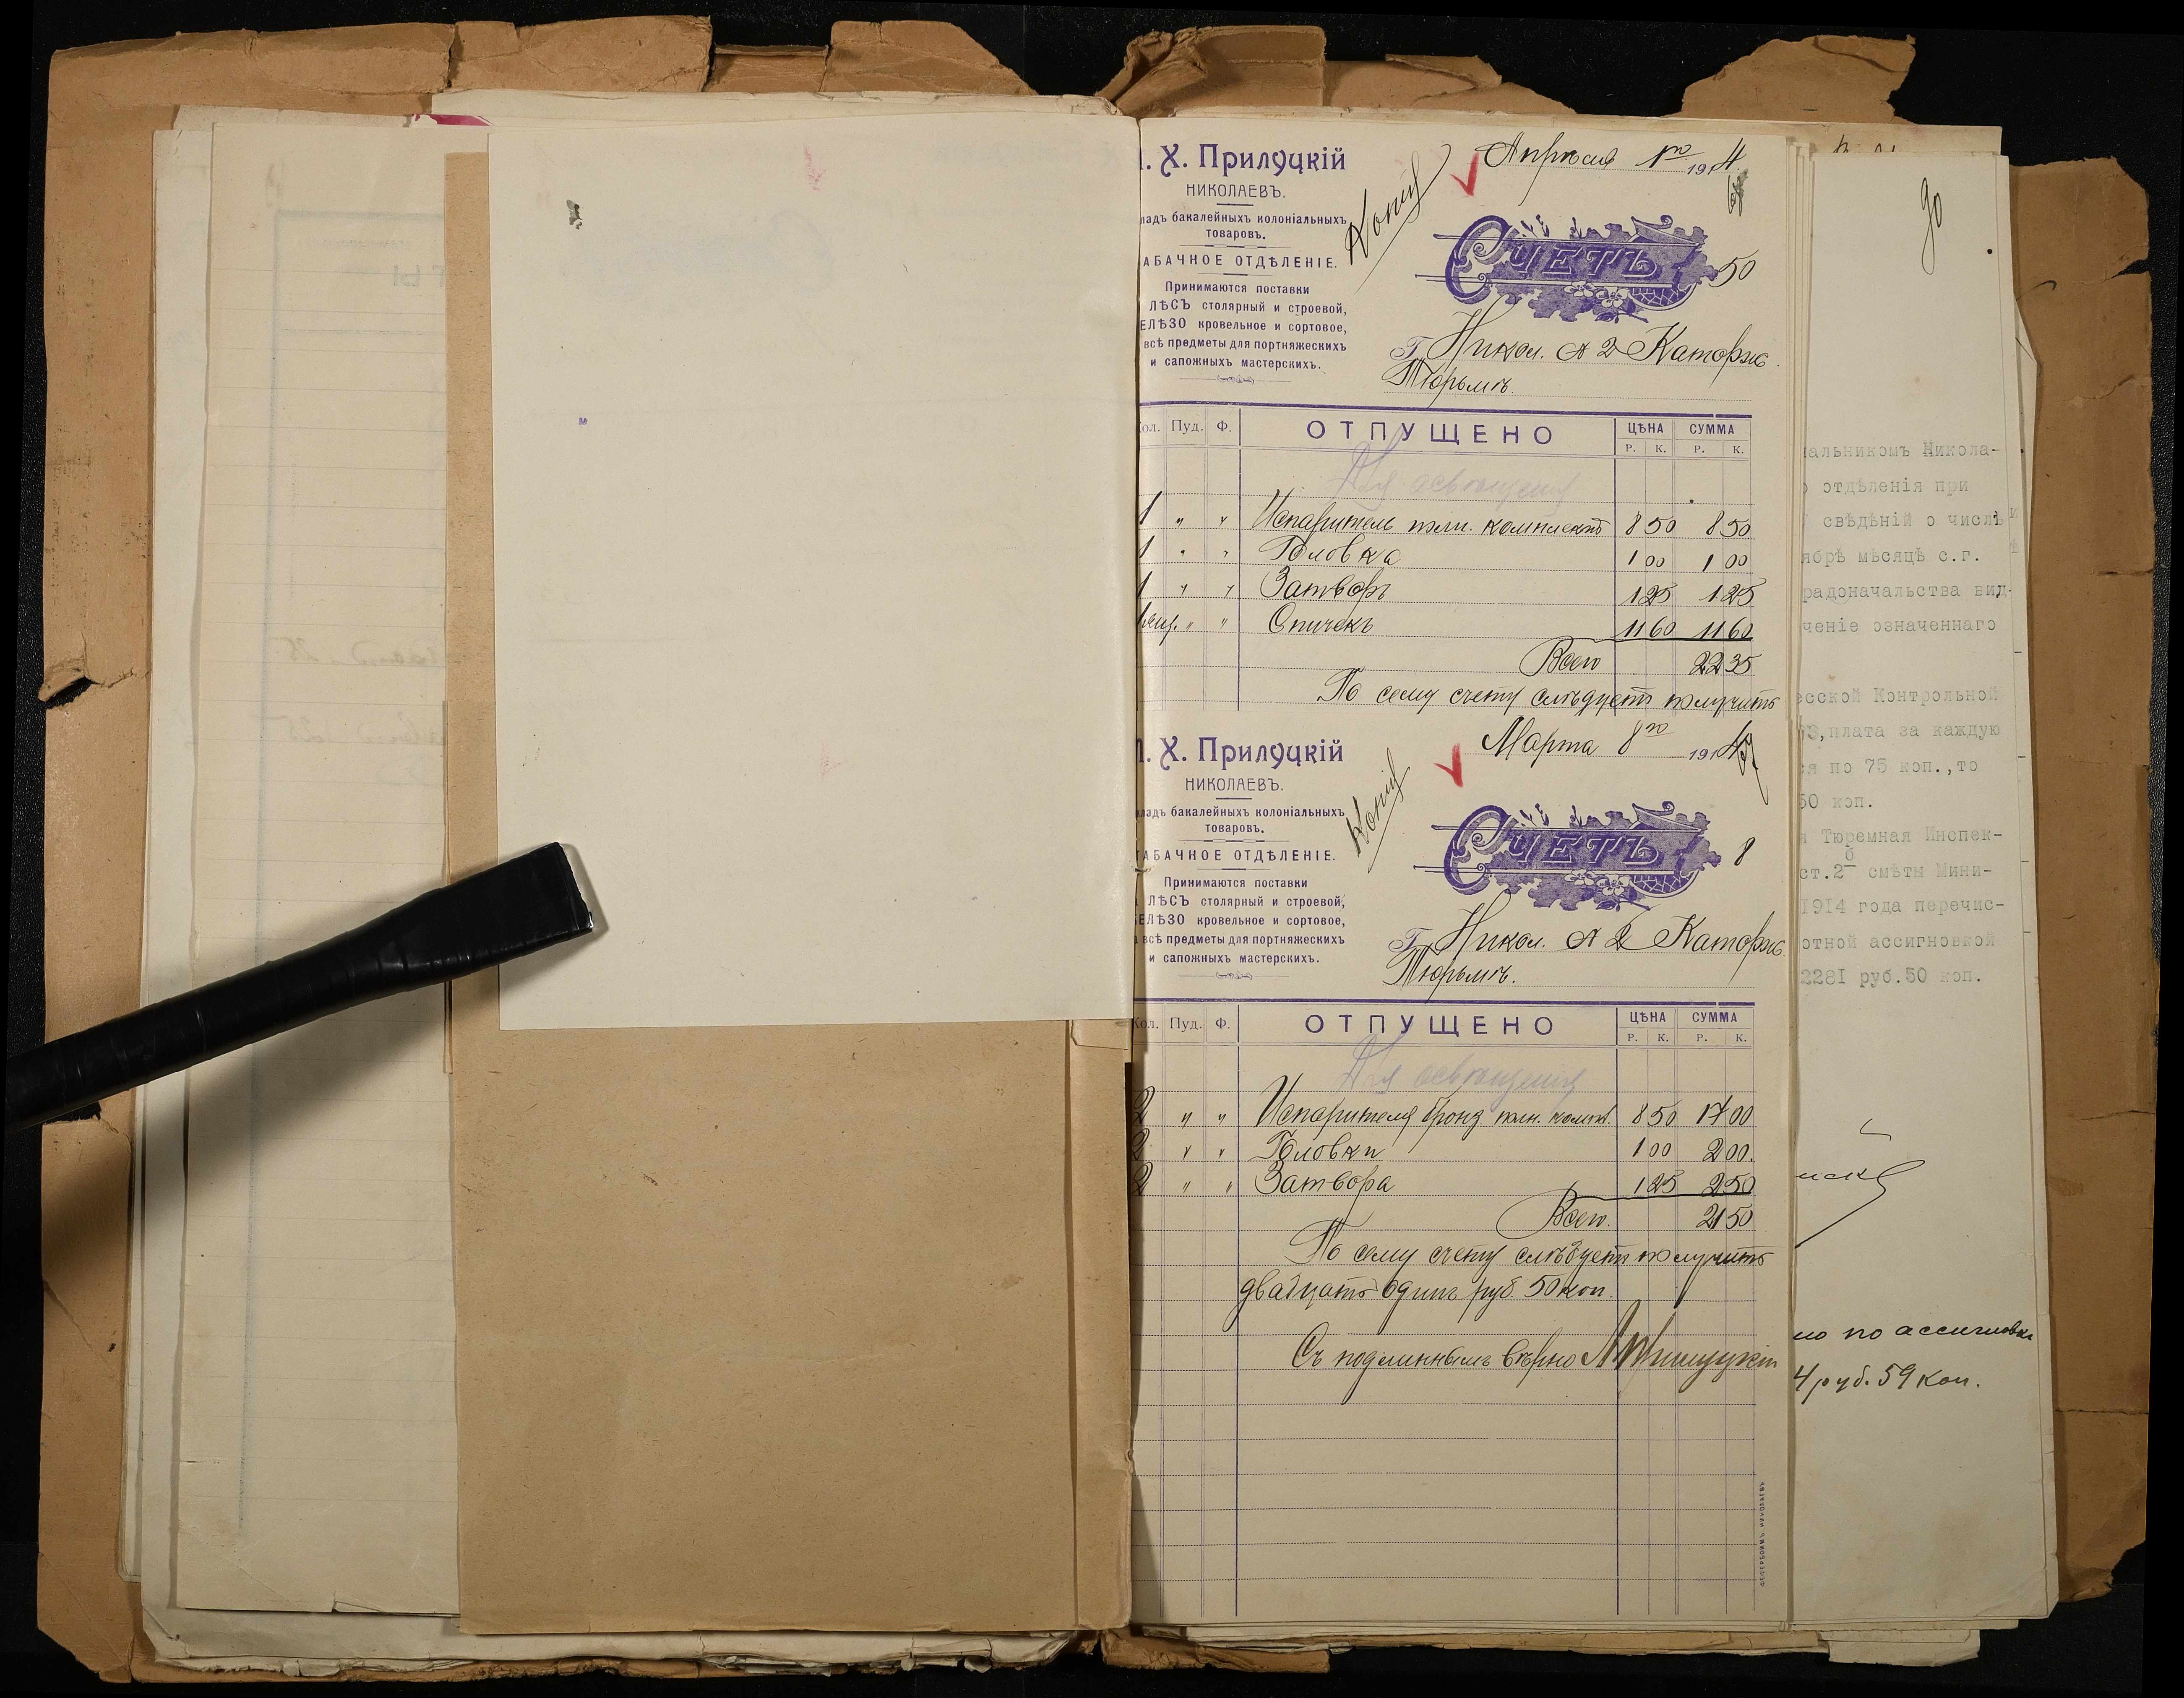 . Х. Прилуцкій
НИКОЛАЕВЪ.
ладъ бакалейныхъ колоніальныхъ
товаровъ.
АБАЧНОЕ ОТДѢЛЕНІЕ.
Принимаются поставки
ЛѢСЪ столярный и строевой,
ЕЛѢЗО кровельное и сортовое,
всѣ предметы для портняжескихъ
и сапожныхъ мастерскихъ.
Копія
Апрѣля 1го 1914
СЧЕТЪ 50
Г. Никол. Катор
Тюрьмѣ.
Кол. Пуд. Ф. ОТПУЩЕНО ЦѢНА СУММА
Р. К. Р. К.
Для освѣщенія
1 " " Испаритель полн. комплектъ 8 50 8 50
1 " " Головка 1 00 1 00
1 " " Затворъ 1 25 1 25
1 ящ. " " Спичекъ 11 60 11 60
Всего 22 35
По сему счету слѣдуетъ получить
. Х. Прилуцкій
НИКОЛАЕВЪ.
ладъ бакалейныхъ колоніальныхъ
товаровъ.
ТАБАЧНОЕ ОТДѢЛЕНІЕ.
Принимаются поставки
ЛѢСЪ столярный и строевой,
ЕЛѢЗО кровельное и сортовое,
всѣ предметы для портняжескихъ
и сапожныхъ мастерскихъ.
Копія
Марта 8го 1914
СЧЕТЪ 8
Г. Никол. Каторж
Тюрьмѣ.
Кол. Пуд. Ф. ОТПУЩЕНО ЦѢНА СУММА
Р. К. Р. К.
Для освѣщенія
2 " " Испарителя бронз полн. компл. 8 50 17 00
2 " " Головки 1 00 2 00.
2 " " Затвора 1 25 2 50
Всего. 21 50
По сему счету слѣдуетъ получить
двадцать одинъ руб. 50 коп.
Съ подлиннымъ вѣрно Прилуцкій
90
альникомъ Никола-
о отдѣленія при
свѣдѣній о числѣ
ябрѣ мѣсяцѣ с.г.
радоначальства вид-
ченіе означеннаго
есской Контрольной
3,плата за каждую
ся по 75 коп.,то
50 коп.
я Тюремная Инспек-
ст.2 б смѣты Мини-
1914 года перечис-
отной ассигновкой
2281 руб.50 коп.
но по ассигновкѣ
4 руб. 59 коп.